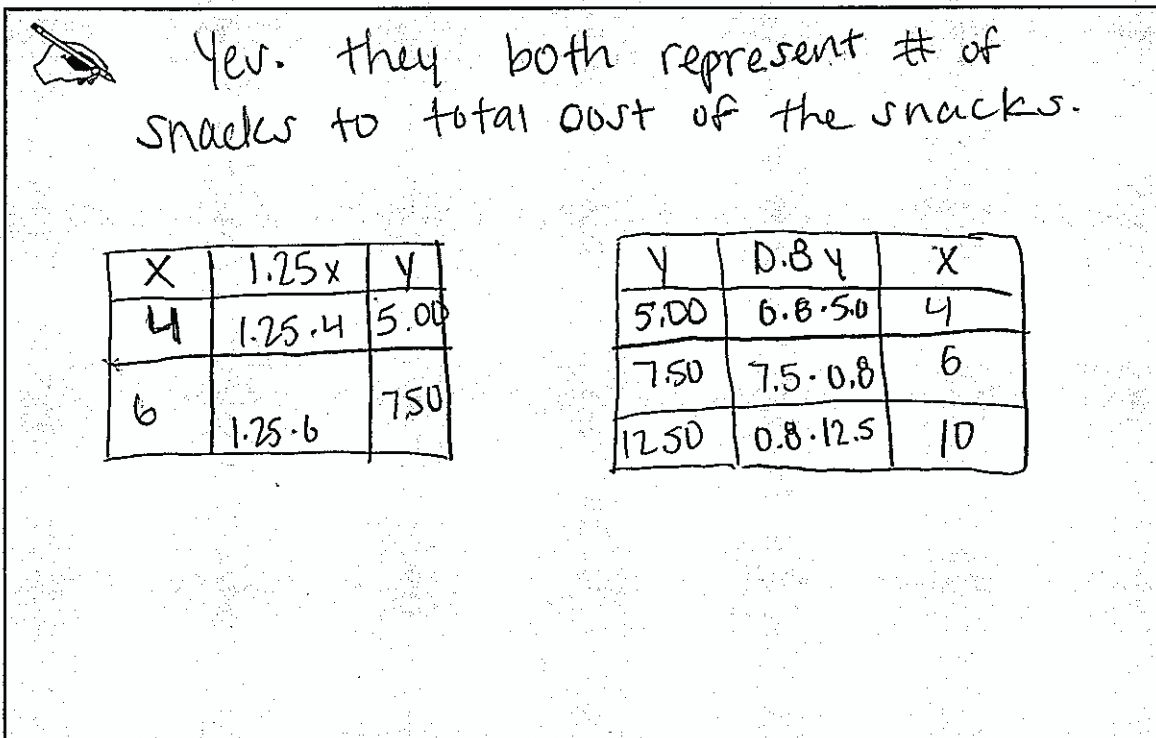 Yes. they both represent # of
snacks to total cost of the snacks.
X 1.25x Y
4 1.25·4 5.00
6 1.25·6 7.50
Y 0.8y X
5.00 0.8·5.0 4
7.50 7.5·0.8 6
12.50 0.8·12.5 10